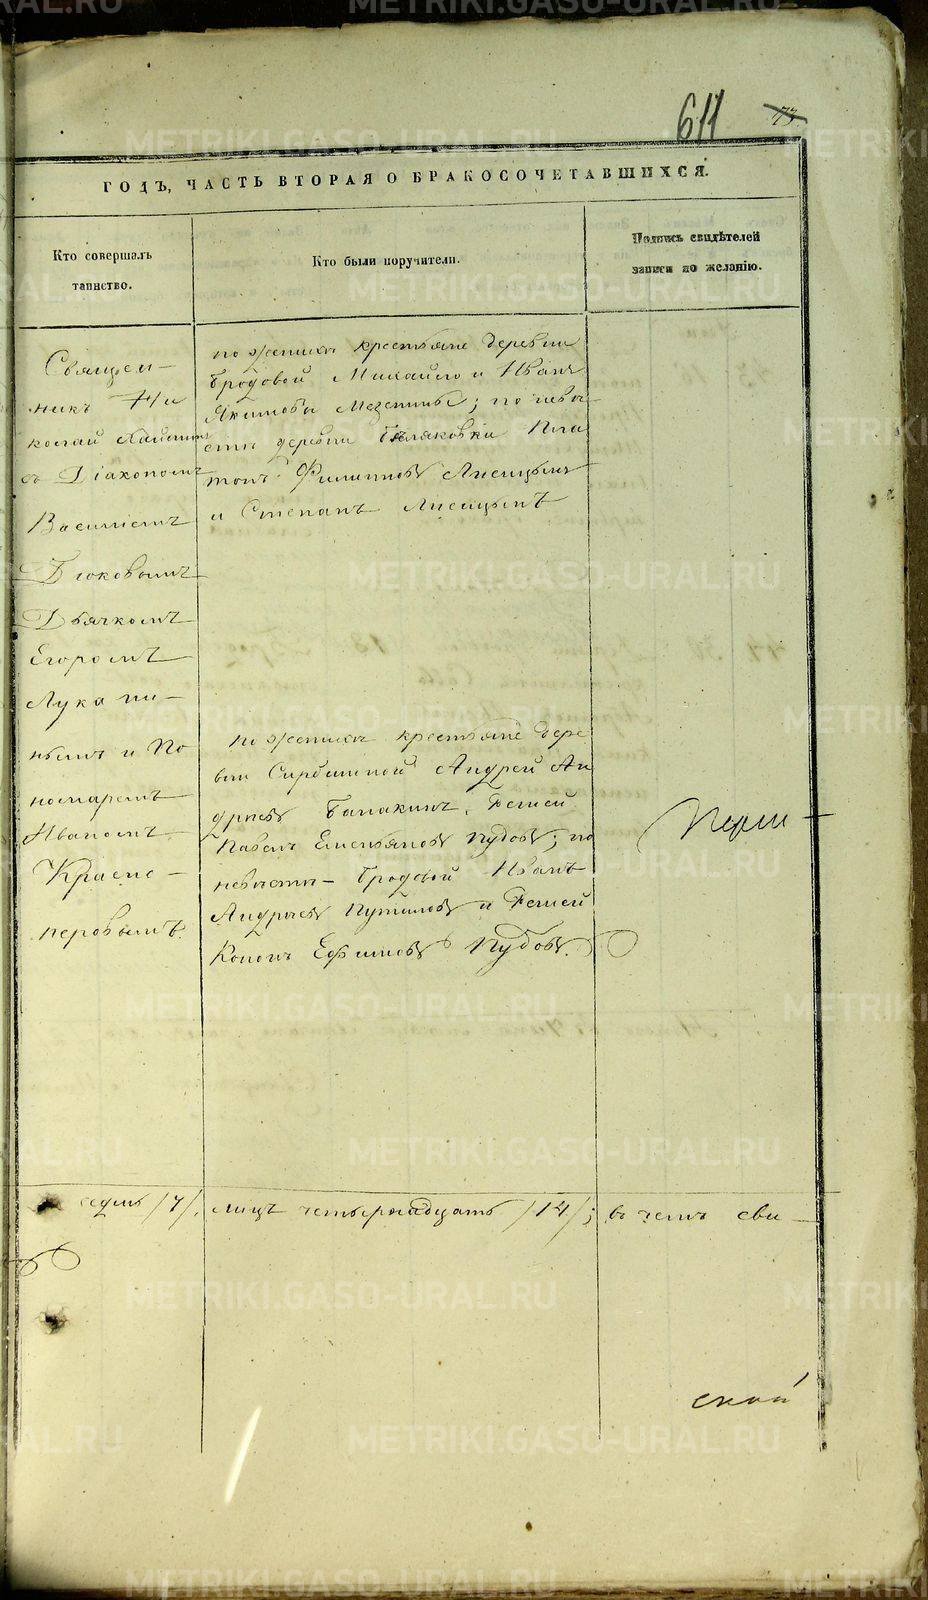 611 73
ГОДЪ, ЧАСТЬ ВТОРАЯ О БРАКОСОЧЕТАВШИХСЯ.
Кто совершалъ
таинство.
Кто были поручители.
Подпись свидѣтелей
записи по желанію.
Священ-
никъ Ни
колай
съ Діакономъ
Василіемъ
Бюковымъ
Дьячкомъ
Егоромъ
Лукани-
нымъ и По
номаремъ
Иваномъ
Краснс-
перовымъ.
по женихѣ крестьяне деревни
Бродовой Михайло и Иванъ
Якимовы Мезенины; по невѣ
стѣ деревни Бѣляковки Пла
тонъ Филипповъ Лисицынъ
и Степанъ Лисицынъ
по женихѣ крестьяне дере
вни Сарбишной Андрей Ан
дреевъ Балакинъ,
Павелъ Емельяновъ Пудовъ; по
невѣстѣ - Бродовой Иванъ
Андреевъ Путиловъ и
Кононъ Ефимовъ Пудовъ.
Перм-
седмь /7/, лицъ четырнадцать /14/; въ чемъ сви-
ской
METRIKI.GASO-URAL.RU